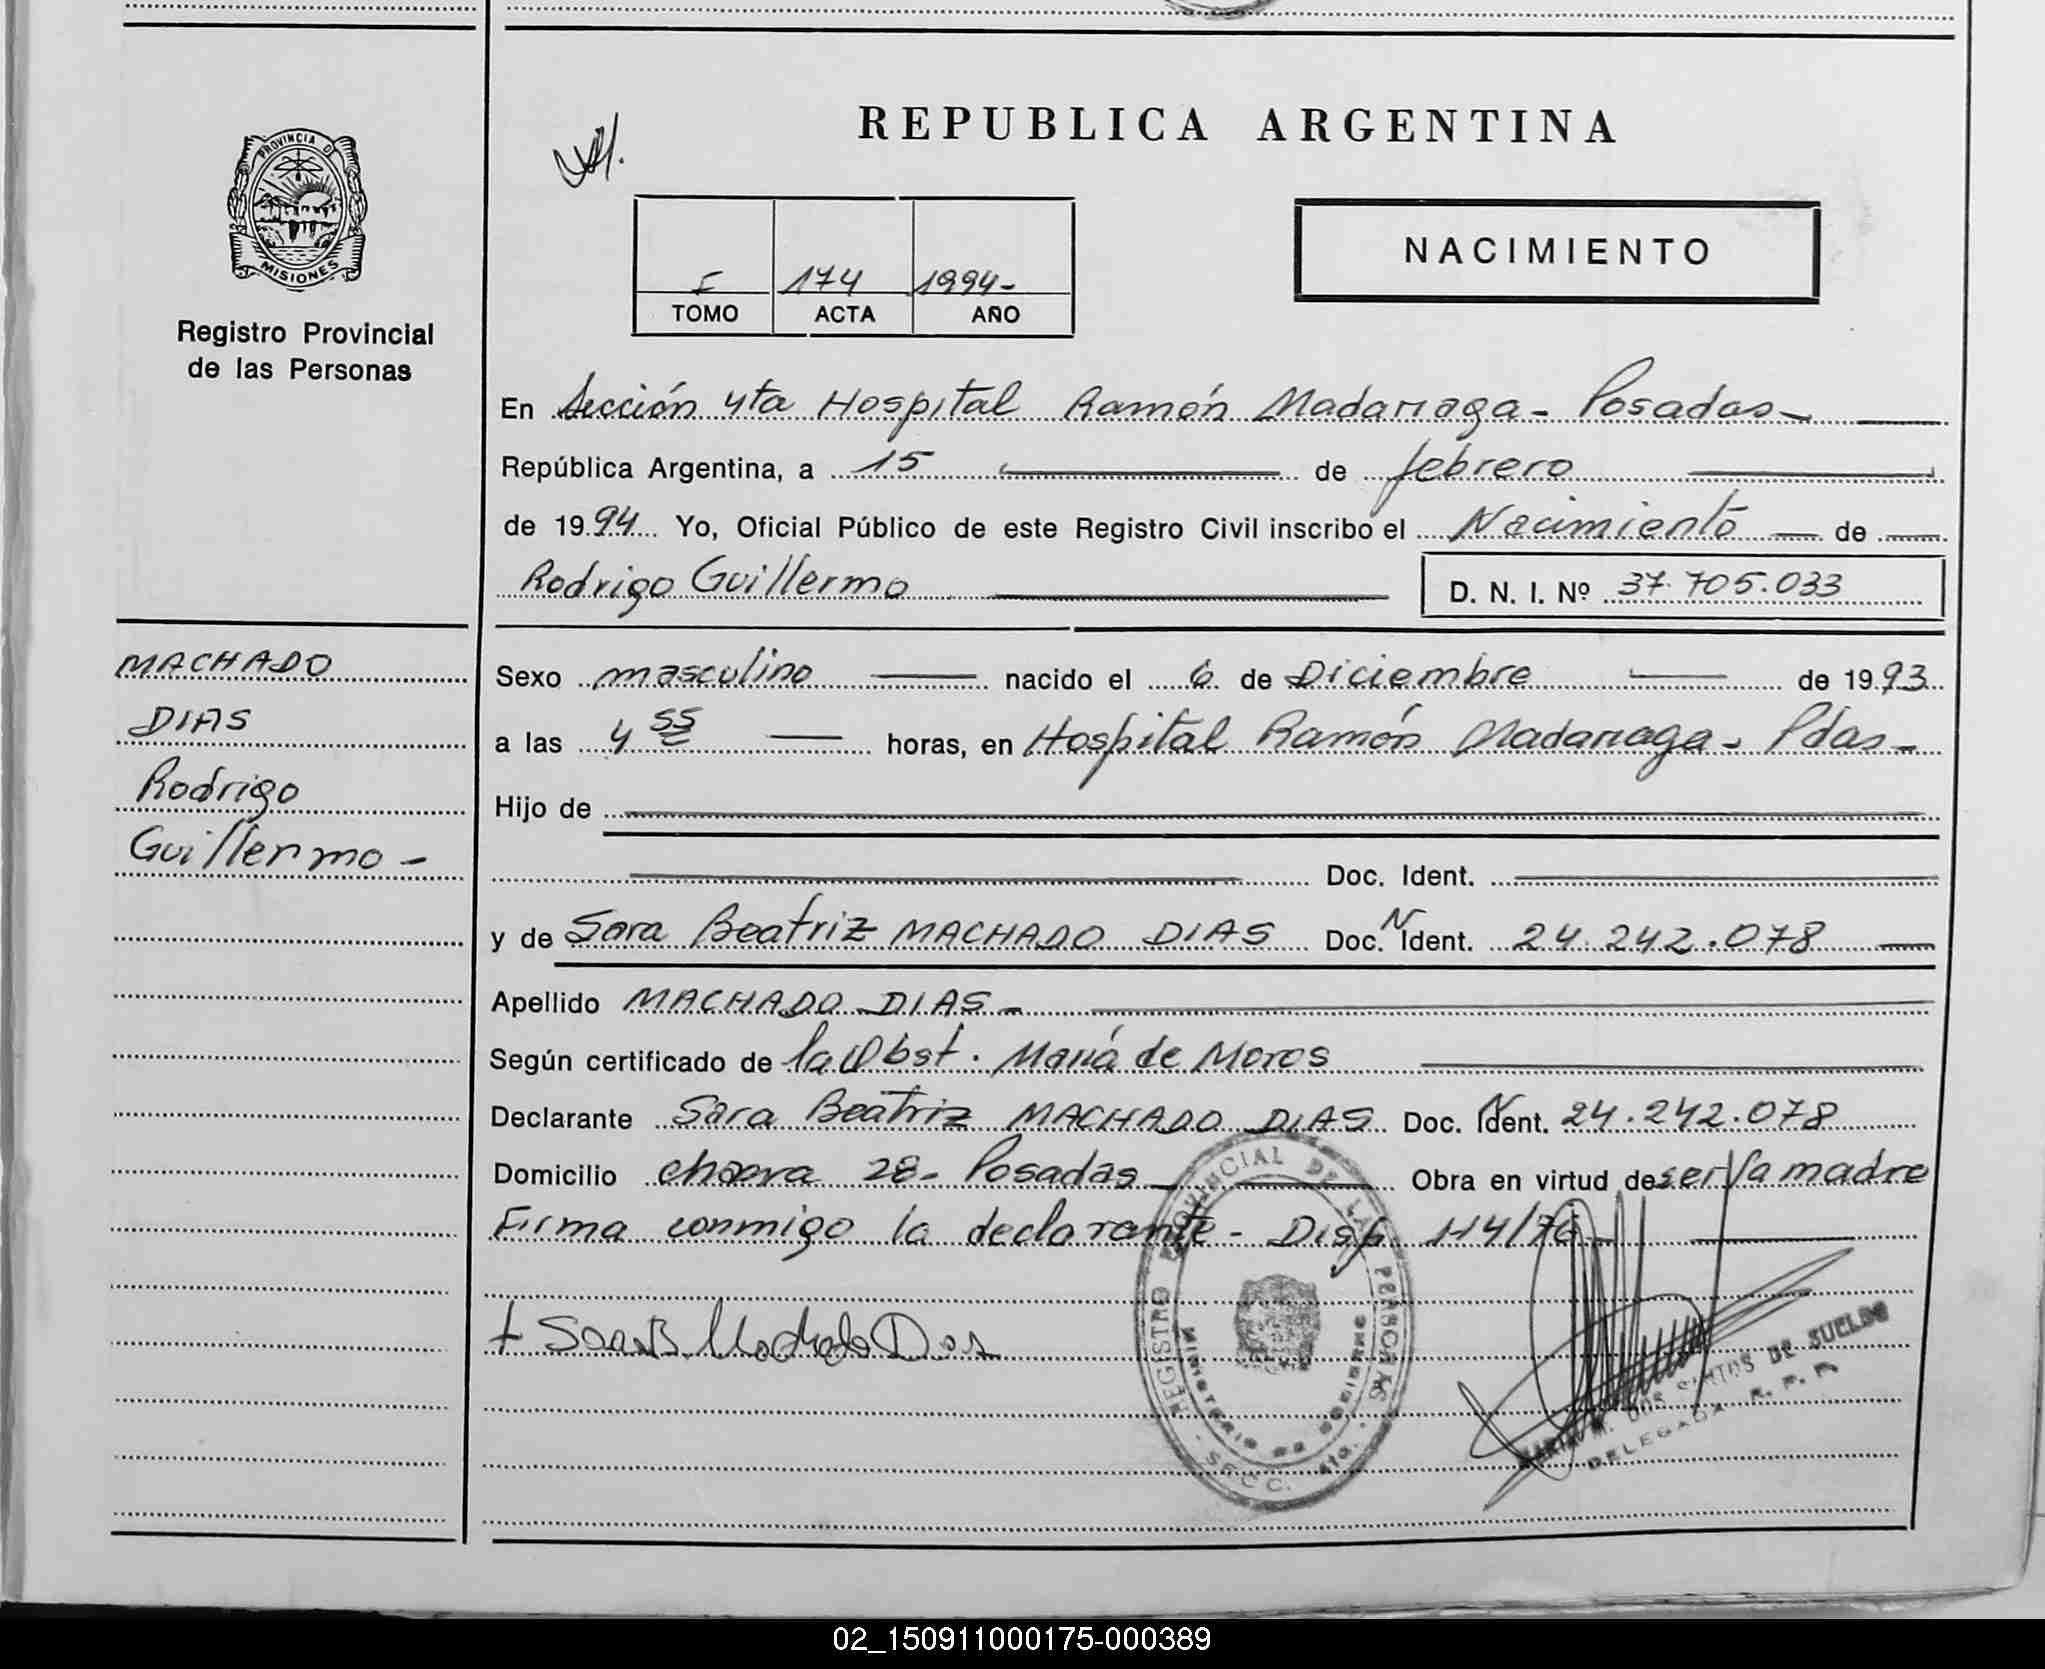 REPUBLICA ARGENTINA
PROVINCIA D
MISIONES
Registro Provincial
de las Personas
I 174 1994-
TOMO ACTA AÑO
NACIMIENTO
En Sección 4ta Hospital Ramón Madariaga - Posadas -
República Argentina, a 15 de febrero
de 1994 Yo, Oficial Público de este Registro Civil inscribo el Nacimiento de
Rodrigo Guillermo D. N. I. Nº 37.705.033
MACHADO
DIAS
Rodrigo
Guillermo -
Sexo masculino nacido el 6 de Diciembre de 1993
a las 4 55 horas, en Hospital Ramón Madariaga - Pdas -
Hijo de
Doc. Ident.
y de Sara Beatriz MACHADO DIAS Doc. N Ident. 24.242.078
Apellido MACHADO DIAS -
Según certificado de la Obst. María de Moros
Declarante Sara Beatriz MACHADO DIAS Doc. Ident. 24.242.078
Domicilio chacra 28 - Posadas Obra en virtud de ser la madre
Firma conmigo la declarante - Disp. 114/76
+ Sara B Machado Dias
REGISTRO PROVINCIAL DE LAS PERSONAS
MINISTERIO DE GOBIERNO
- SECC. 4ta. -
MARIA M. DOS SANTOS DE SUELDO
DELEGADA R. P. P.
02_150911000175-000389